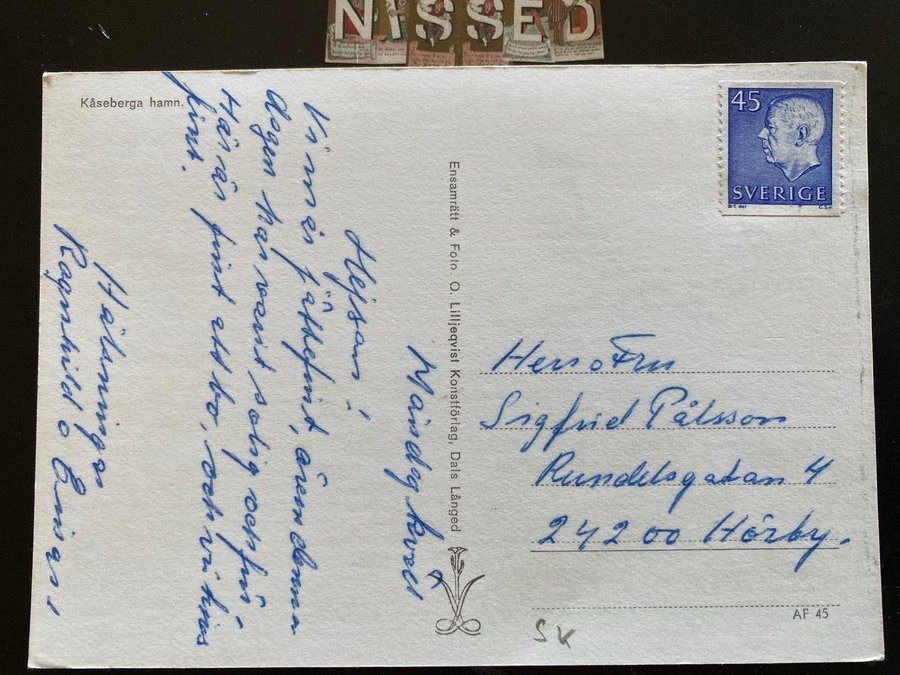 NISSED
Kåseberga hamn.
45
SVERIGE
Måndag kväll
Hejsan!
Vi mår jättefint, även denna
dagen har varit solig och fin.
Här är fint att bo, och vi har
fint.
Hälsningar
Ragnhild o
Ensamrätt & Foto. O. Lilljeqvist Konstförlag, Dals Långed
Herr o Fru
Sigfrid Pålsson
Rundelsgatan 4
242 00 Hörby.
AF 45
SK